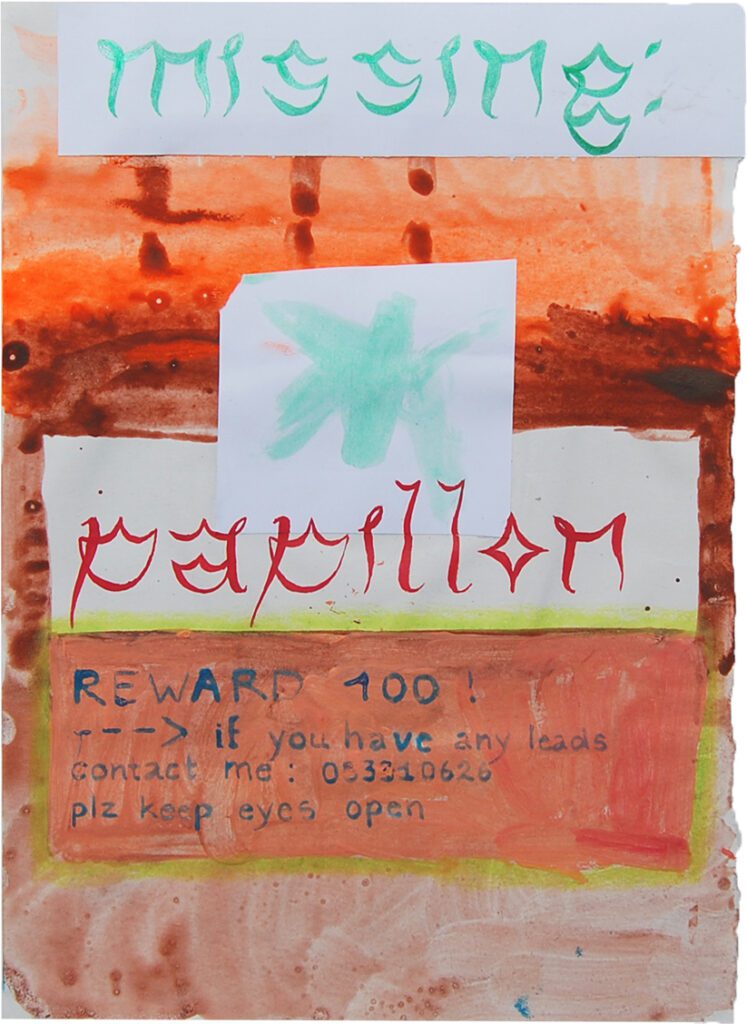 missing:
papillon
REWARD 100!
---> if you have any leads
contact me: 053310626
plz keep eyes open